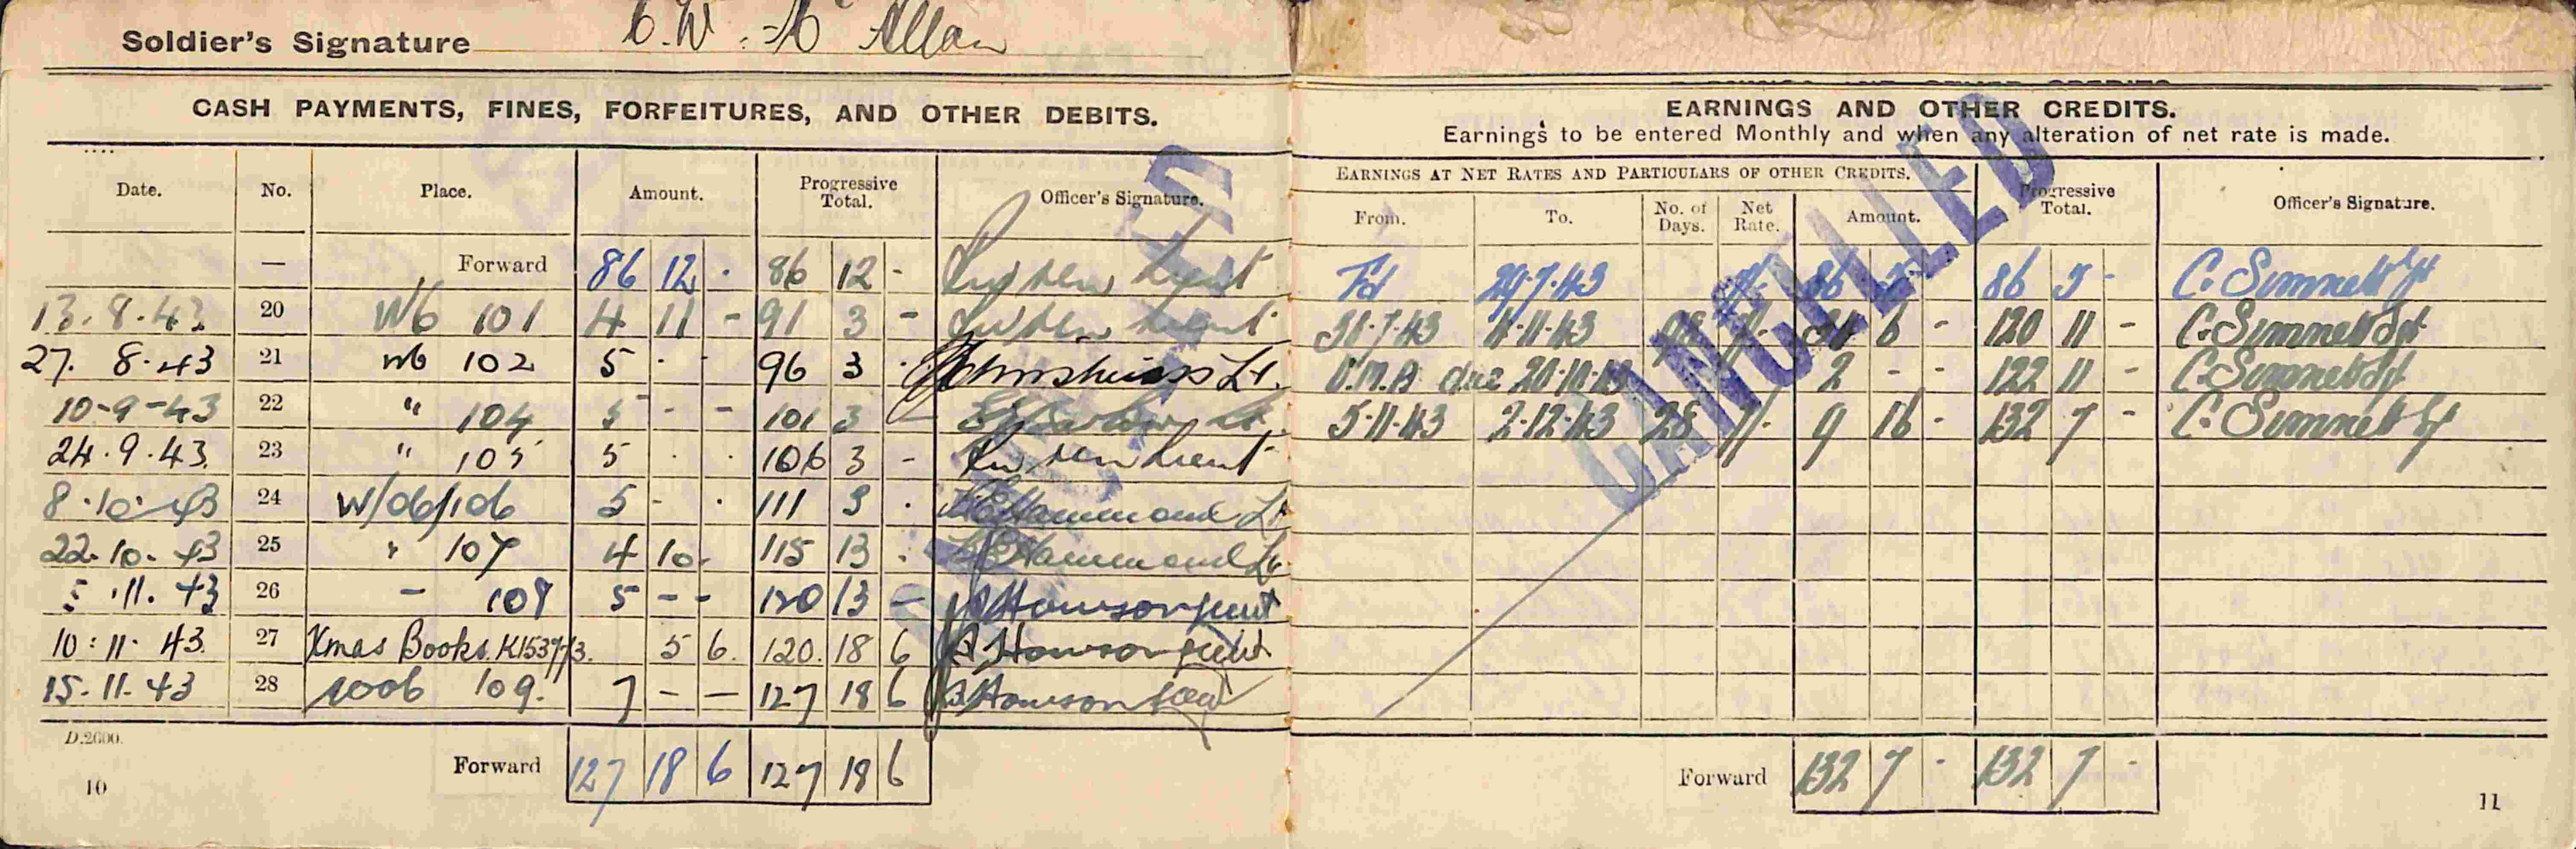 Soldier's Signature C. W. Mc Allan
CASH PAYMENTS, FINES, FORFEITURES, AND OTHER DEBITS.
Date. No. Place. Amount. Progressive Total. Officer's Signature.
— Forward 86 12 - 86 12 - Lieut
13.8.43 20 W6 101 4 11 - 91 3 -
27. 8.43 21 W6 102 5 - - 96 3 - Lt.
10-9-43 22 " 104 5 - - 101 3 - Lt.
24.9.43. 23 " 105 5 - - 106 3 - Lieut
8.10.43 24 W/06/106 5 - - 111 3 - Hammond Lt
22.10.43 25 " 107 4 10 - 115 13 - Hammond Lt
5.11.43 26 - 108 5 - - 120 13 - Howson Lieut
10:11.43. 27 Xmas Books. 5 6. 120. 18 6 Howson Lieut
15.11.43 28 109. 7 - - 127 18 6 Howson Lieut
Forward 127 18 6 127 18 6
D.2600.
10
EARNINGS AND OTHER CREDITS.
Earnings to be entered Monthly and when any alteration of net rate is made.
EARNINGS AT NET RATES AND PARTICULARS OF OTHER CREDITS. Progressive Total. Officer's Signature.
From. To. No. of Days. Net Rate. Amount.
Fd 29.7.43 86 5 - 86 5 - C. Simnett Lt
7.43 4.11.43 98 7/- 34 6 - 120 11 - C. Simnett Lt
due 20.10.43 2 - - 122 11 - C. Simnett Lt
5.11.43 2.12.43 28 7/- 9 16 - 132 7 - C. Simnett Lt
CANCELLED
Forward 132 7 - 132 7 -
11